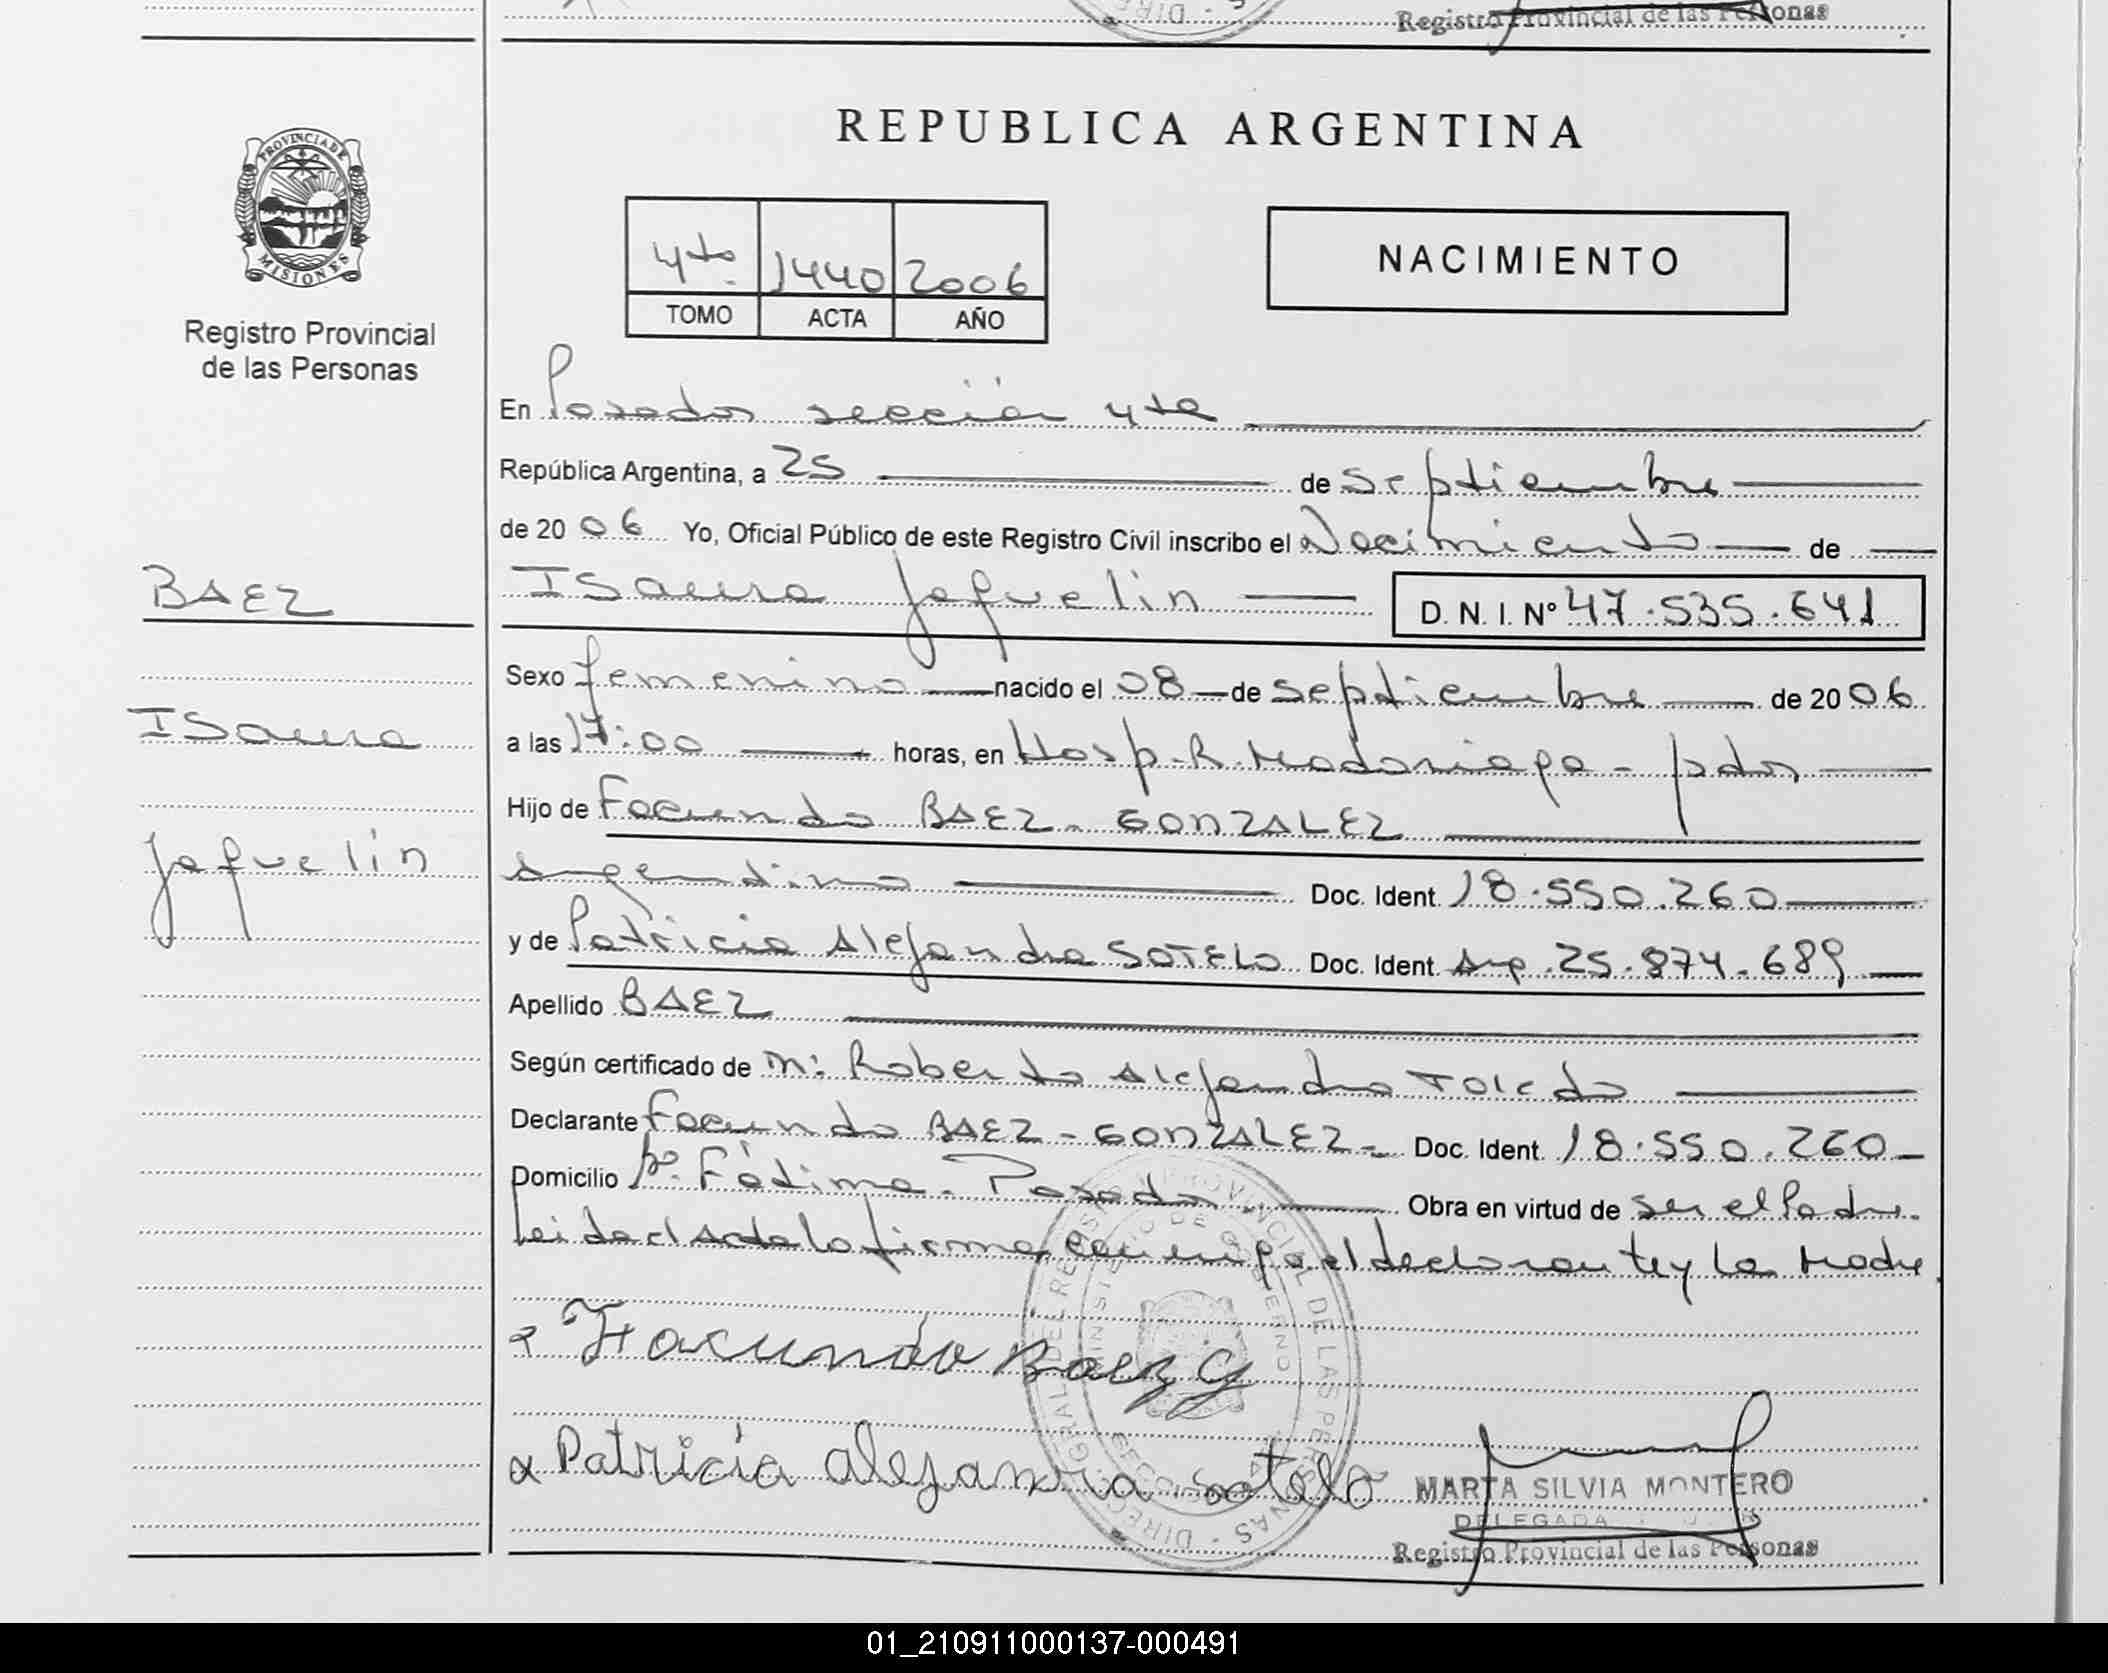 Registro Provincial de las Personas
REPUBLICA ARGENTINA
PROVINCIA DE
MISIONES
Registro Provincial
de las Personas
4to. 1440 2006
TOMO ACTA AÑO
NACIMIENTO
En Posadas sección 4ta
República Argentina, a 25 de septiembre
de 20 06 Yo, Oficial Público de este Registro Civil inscribo el Nacimiento de
Isaura Jaquelin D. N. I. Nº 47.535.641
BAEZ
Isaura
Jaquelin
Sexo femenino nacido el 08 de septiembre de 20 06
a las 17:00 horas, en Hosp. R. Madariaga - Pdas
Hijo de Facundo BAEZ - GONZALEZ
Argentino Doc. Ident. 18.550.260
y de Patricia Alejandra SOTELO Doc. Ident. Arg. 25.874.689
Apellido BAEZ
Según certificado de M: Roberto Alejandro Toledo
Declarante Facundo BAEZ - GONZALEZ - Doc. Ident. 18.550.260
Domicilio Bº. Fátima. Posadas Obra en virtud de ser el Padre.
Leida el Acta la firma conmigo el declarante y la Madre.
x Facundo Baez G
x Patricia alejandra Sotelo
MARTA SILVIA MONTERO
DELEGADA
Registro Provincial de las Personas
01_210911000137-000491